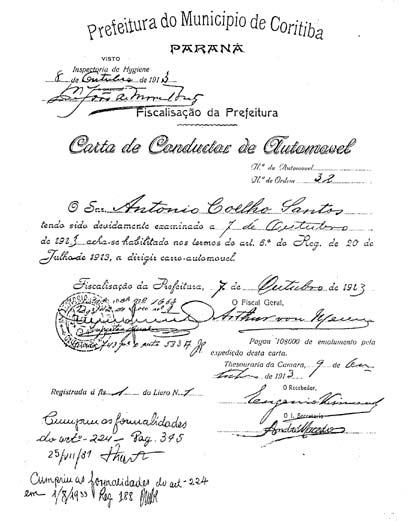 Prefeitura do Municipio de Coritiba
PARANÁ
VISTO
Inspectoria da Hygiene
8 de Outubro de 1913
Fiscalisação da Prefeitura
Carta de Conductor de Automovel
N.º do Automovel
N.º de Ordem 32
O Snr. Antonio Coelho Santos
tendo sido devidamente examinado a 7 de Outubro
de 1913 acha-se habilitado nos termos do art. 6.º do Reg. de 20 de
Julho de 1913, a dirigir carro-automovel.
Fiscalisação da Prefeitura, 7 de Outubro de 1913
O Fiscal Geral,
Arthur von
Pagou 10$000 de emolumento pela
expedição desta carta.
Thesouraria da Camara, 9 de
de 1913
O Recebedor,
Eugenio
Registrada á fls. 1 do Livro N. 1
O I. Secretario
Cumpriu as formalidades
do art. 224 - Pag. 345
25/VII/31
Cumpriu as formalidades do art. 224
em 1/8/1933 Pag. 188